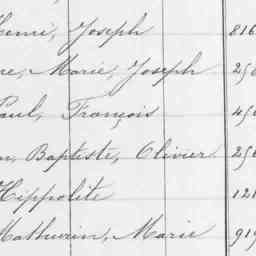 Henri, Joseph 816
re, Marie, Joseph 250
Paul, François 450
n, Baptiste, Olivier 250
Hippolite 121
Mathurin, Marie 919